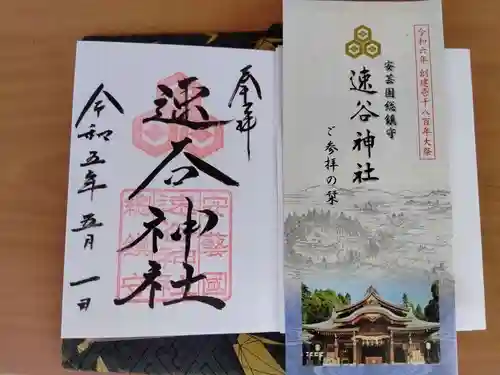 奉拝
速谷神社
安藝國
速谷神社
総鎮守
令和五年五月一日
令和六年 創建壱千八百年大祭
安芸国総鎮守
速谷神社
ご参拝の栞